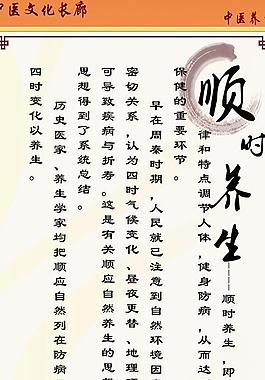 中医文化长廊
中医养
顺时养生
------顺时养生,即
律和特点调节人体,健身防病,从而达
保健的重要环节。
早在周秦时期,人民就已注意到自然环境因
密切关系,认为四时气候变化、昼夜更替、地理
可导致疾病与折寿。这是有关顺应自然养生的思
思想得到了系统总结。
历史医家、养生学家均把顺应自然列在防病
四时变化以养生。